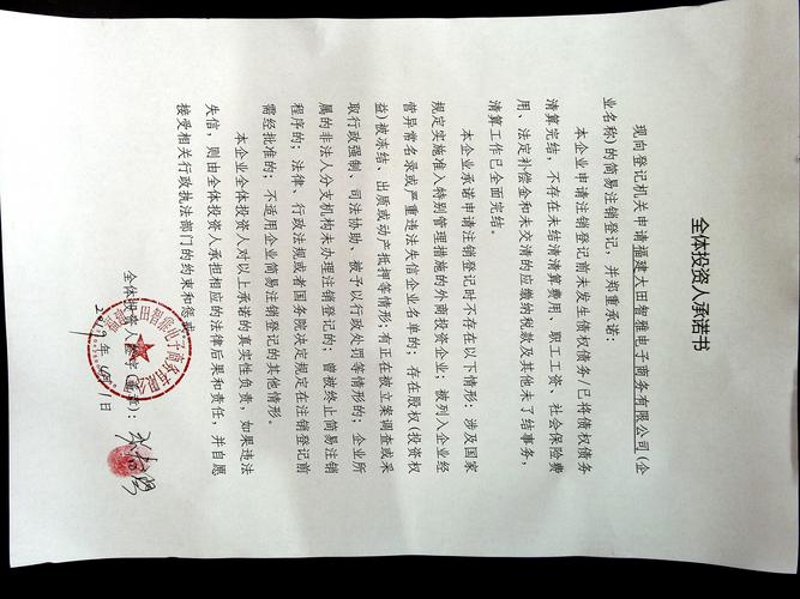 全体投资人承诺书
现向登记机关申请福建大田智雅电子商务有限公司(企
业名称)的简易注销登记，并郑重承诺：
本企业申请注销登记前未发生债权债务/已将债权债务
清算完结，不存在未结清清算费用、职工工资、社会保险费
用、法定补偿金和未交清的应缴纳税款及其他未了结事务，
清算工作已全面完结。
本企业承诺申请注销登记时不存在以下情形：涉及国家
规定实施准入特别管理措施的外商投资企业；被列入企业经
营异常名录或严重违法失信企业名单的；存在股权(投资权
益)被冻结、出质或动产抵押等情形；有正在被立案调查或采
取行政强制、司法协助、被予以行政处罚等情形的；企业所
属的非法人分支机构未办理注销登记的；曾被终止简易注销
程序的；法律、行政法规或者国务院决定规定在注销登记前
需经批准的；不适用企业简易注销登记的其他情形。
本企业全体投资人对以上承诺的真实性负责，如果违法
失信，则由全体投资人承担相应的法律后果和责任，并自愿
接受相关行政执法部门的约束和惩戒。
全体投资人签字(盖章)：
2019年 月 1日
福建大田智雅电子商务有限公司